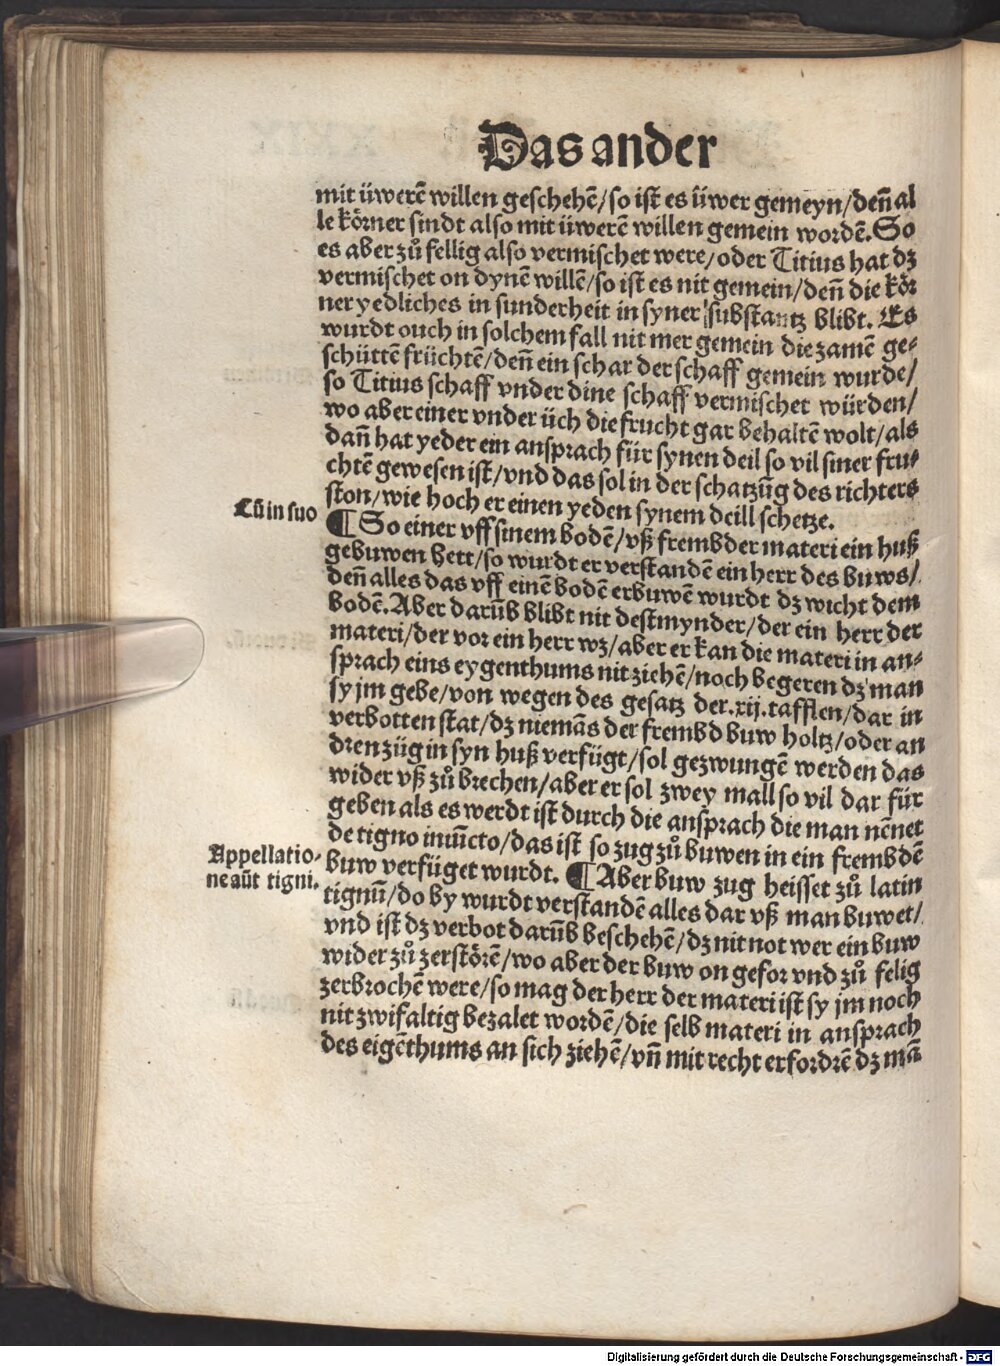 Das ander
mit üwerē willen geschehē/so ist es üwer gemeyn/deñ al
le körner sindt also mit üwerē willen gemein wordē. So
es aber zů fellig also vermischet were/oder Titius hat dz
vermischet on dynē willē/so ist es nit gemein/deñ die kör
ner yedliches in sunderheit in syner substantz blibt. Es
wurdt ouch in solchem fall nit mer gemein die zamē ge-
schüttē früchtē/deñ ein schar der schaff gemein wurde/
so Titius schaff vnder dine schaff vermischet würden/
wo aber einer vnder üch die frucht gar behaltē wolt/als
dañ hat yeder ein ansprach für synen deil so vil siner fru-
chtē gewesen ist/vnd das sol in der schatzūg des richters
ston/wie hoch er einen yeden synem deill schetze.
Cū in suo
¶ So einer vff sinem bodē/vß frembder materi ein huß
gebuwen hett/so wurdt er verstandē ein herr des buws/
deñ alles das vff einē bodē erbuwē wurdt dz wicht dem
bodē. Aber darūb blibt nit destmynder/der ein herr der
materi/der vor ein herr wz/aber er kan die materi in an-
sprach eins eygenthums nit ziehē/noch begeren dz man
sy jm gebe/von wegen des gesatz der.xij.tafflen/dar in
verbotten stat/dz niemās der frembd buw holtz/oder an
dren züg in syn huß verfügt/sol gezwungē werden das
wider vß zů brechen/aber er sol zwey mall so vil dar für
geben als es werdt ist durch die ansprach die man nēnet
de tigno iniūcto/das ist so zug zů buwen in ein frembdē
Appellatio-
ne aūt tigni.
buw verfüget wurdt. ¶ Aber buw zug heisset zů latin
tignū/do by wurdt verstandē alles dar vß man buwet/
vnd ist dz verbot darūb beschehē/dz nit not wer ein buw
wider zů zerstörē/wo aber der buw on gefor vnd zů felig
zerbrochē were/so mag der herr der materi ist sy jm noch
nit zwifaltig bezalet wordē/die selb materi in ansprach
des eigēthums an sich ziehē/vñ mit recht erfordrē dz mā
Digitalisierung gefördert durch die Deutsche Forschungsgemeinschaft - DFG